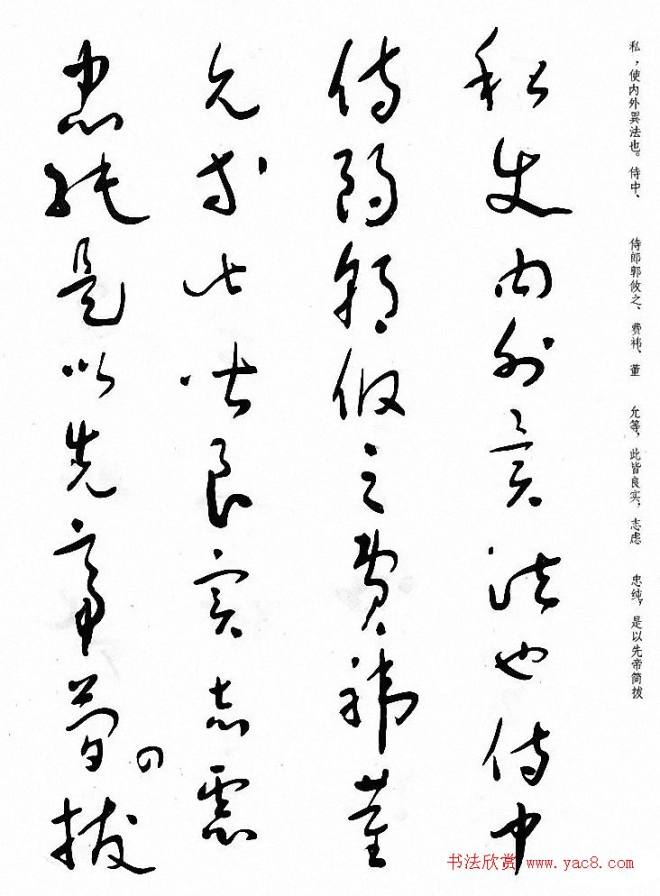 私，使内外异法也。侍中、 侍郎郭攸之、费祎、董 允等，此皆良实，志虑 忠纯，是以先帝简拔
私使内外异法也侍中
侍郎郭攸之费祎董
允等此皆良实志虑
忠纯是以先帝简拔
书法欣赏 www.yac8.com